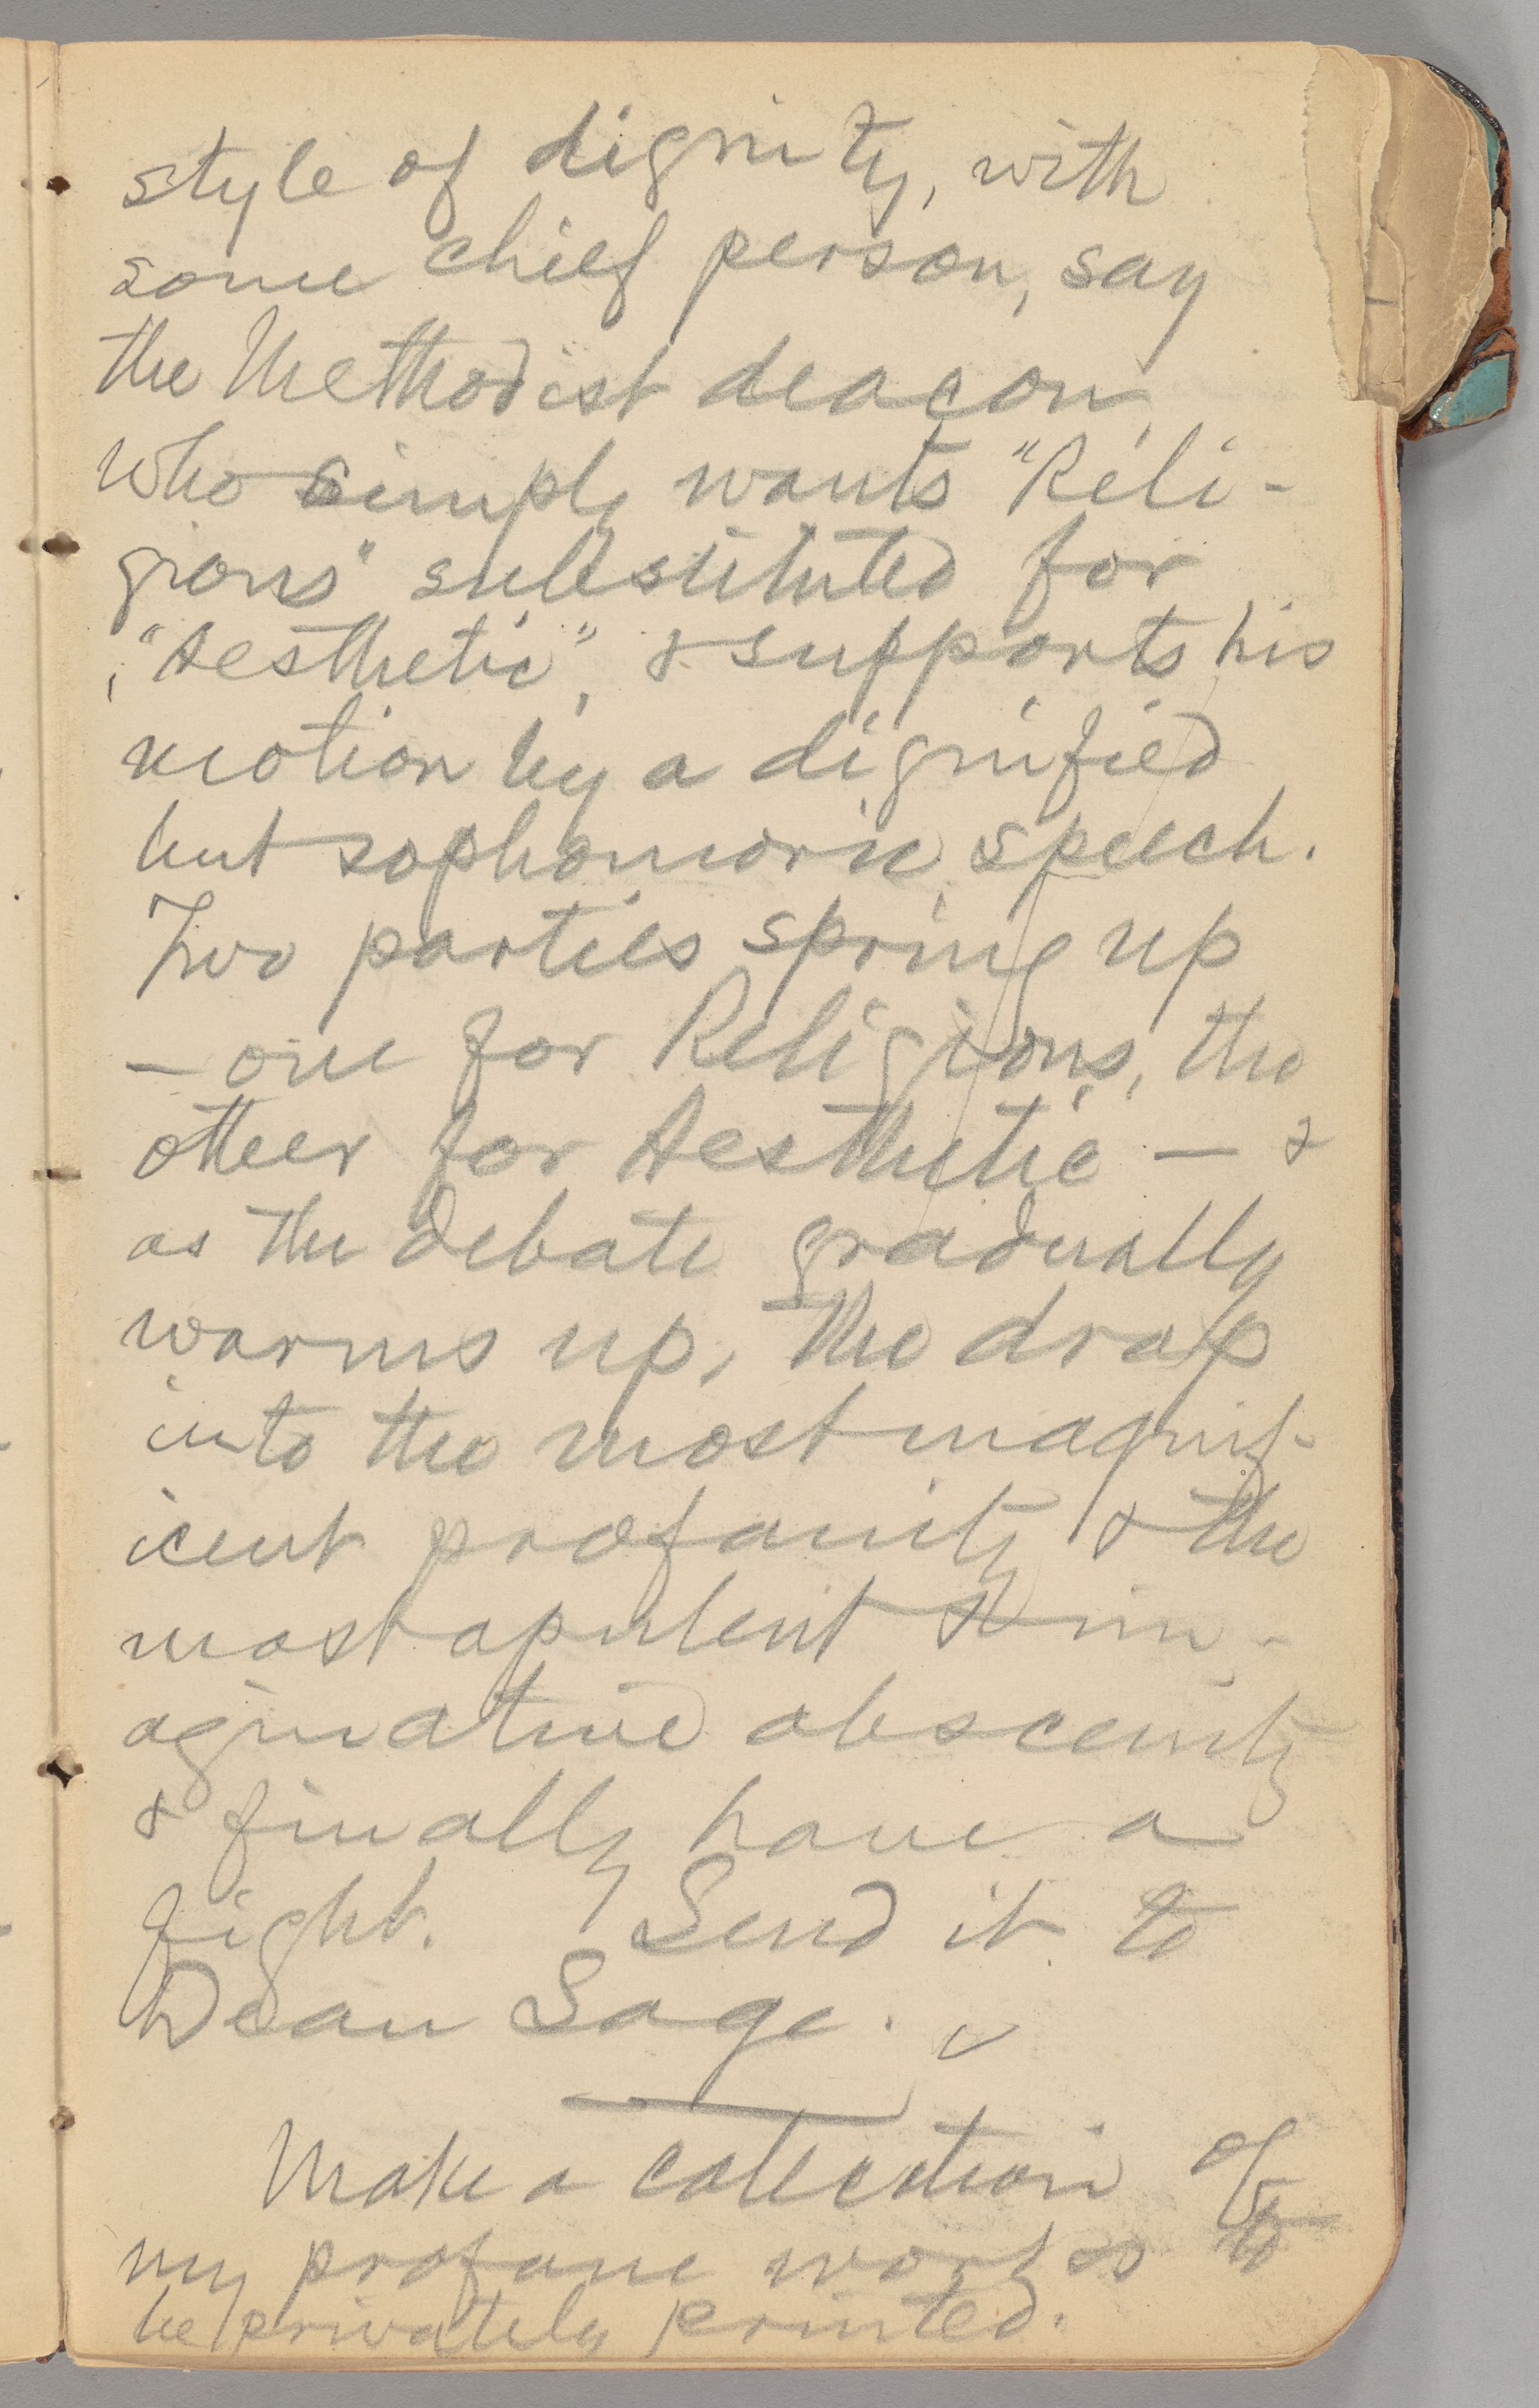 style of dignity, with
some chief person, say
the Methodist deacon,
who simply wants "Reli-
gious" substituted for
"Aesthetic", & supports his
motion by a dignified
but sophomoric speech.
Two parties spring up
— one for Religious, the
other for Aesthetic — &
as the debate gradually
warms up, the drop
into the most magnif-
icent profanity & the
most opulent & im-
aginative obscenity
& finally have a
fight. Send it to
Dean Sage.
Make a collection of
my profane works to
be privately printed.